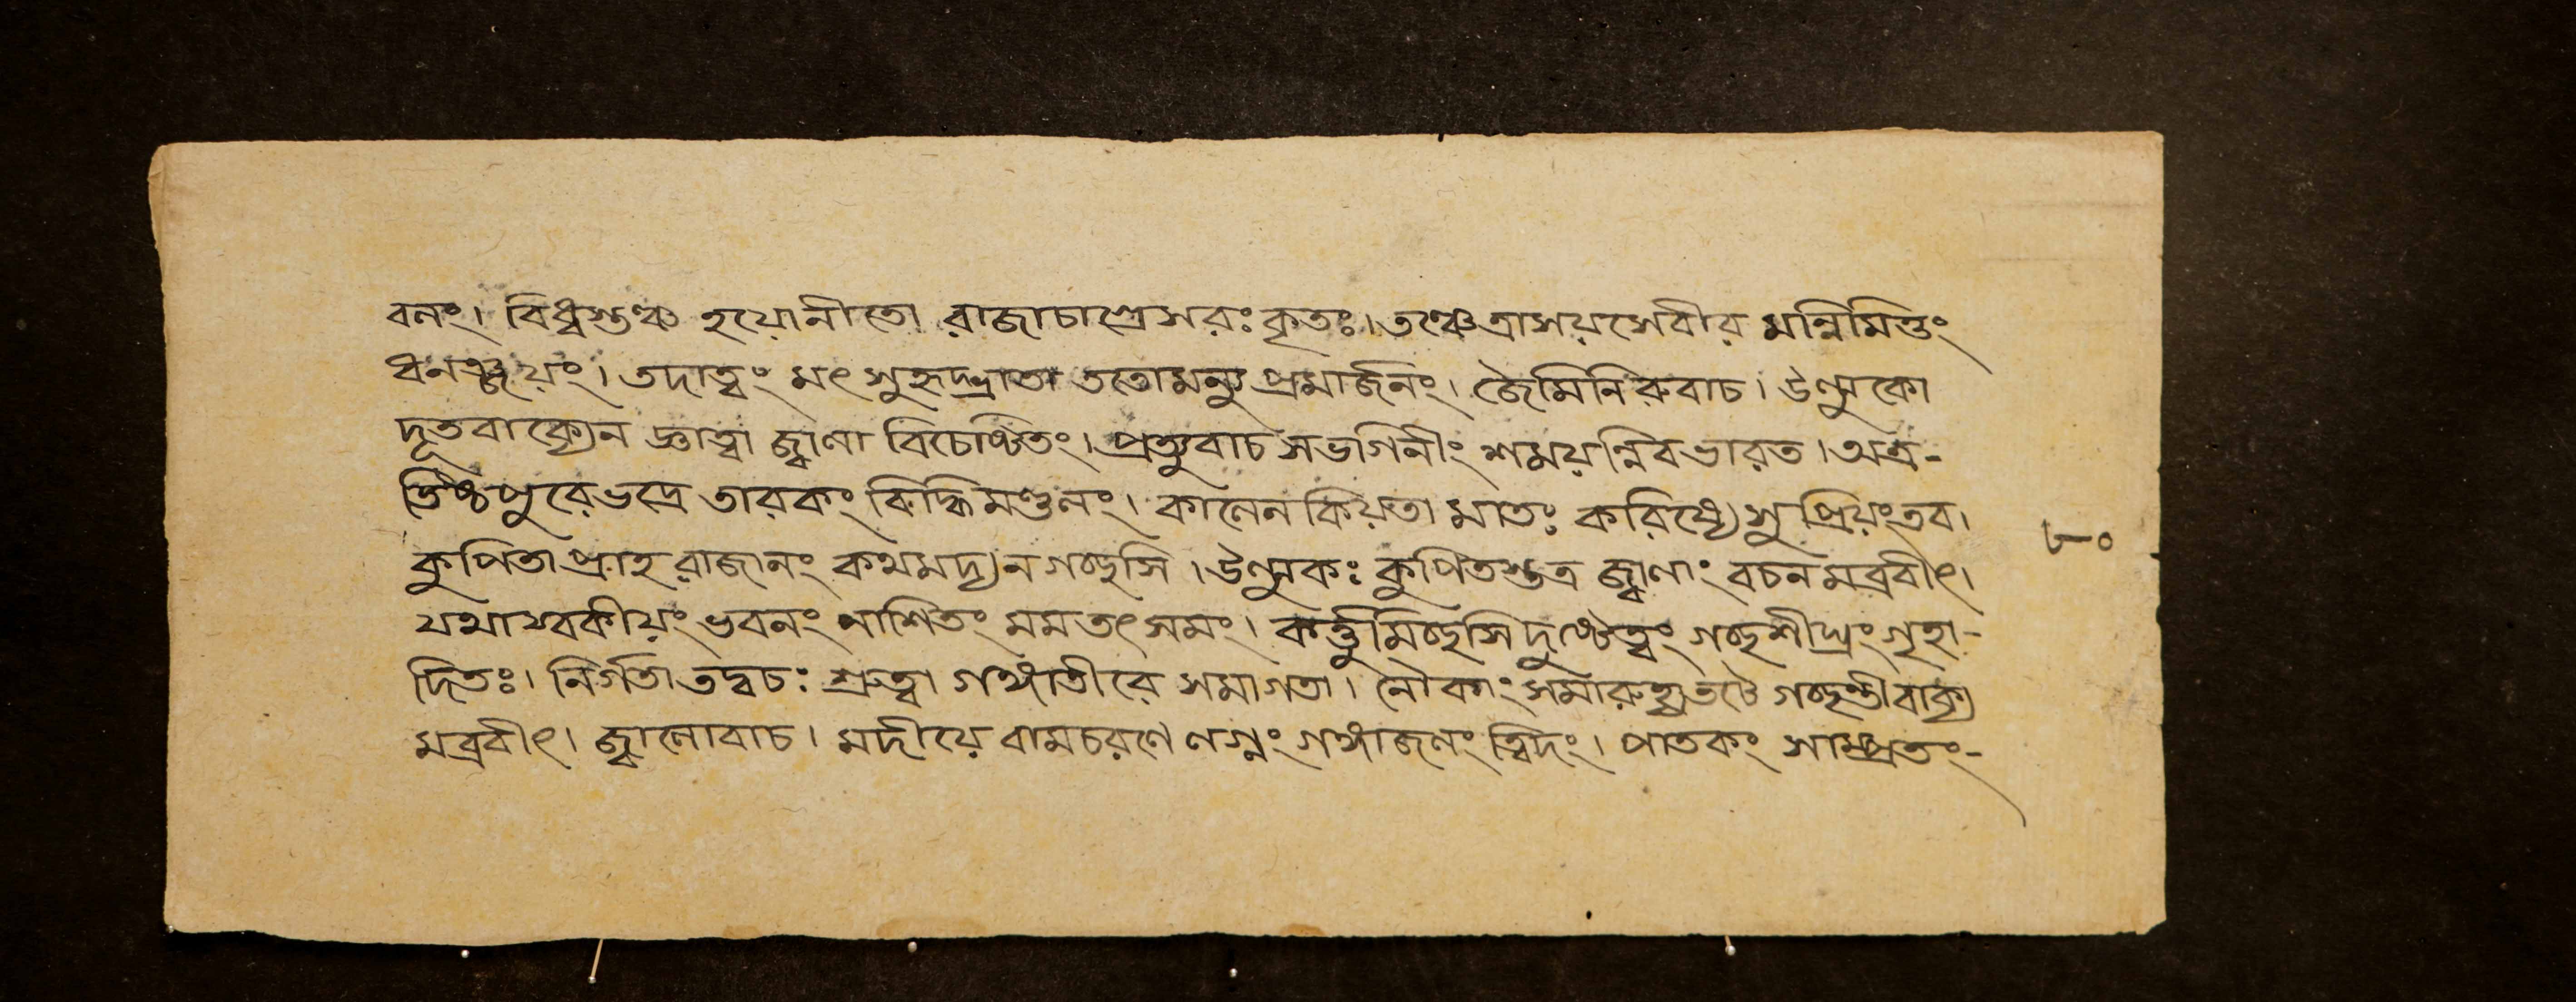 বনং। বিধ্বস্তঞ্চ হয়োনীতো রাজাচাগ্রেসরঃ কৃতঃ। তঞ্চেত্রাসয়সেবীর মন্নিমিত্তং
ধনঞ্জয়ং। তদাত্বং মৎ সুহৃদ্ভ্রাতা ততোমন্যু প্রমার্জনং। জৈমিনিরুবাচ। উল্মুকো
দূতবাক্যেন জ্ঞাত্বা জ্বালা বিচেষ্টিতং। প্রত্যুবাচ সভগিনীং শময়ন্নিবভারত। অত্র-
তিষ্ঠপুরেভদ্রে তারকং বিদ্ধিমণ্ডলং। কালেন কিয়তা মাতঃ করিষ্যে সুপ্রিয়ংতব।
কুপিতা প্রাহ রাজানং কথমদ্য ন গচ্ছসি। উল্মুকঃ কুপিতস্তত্র জ্বালাং বচনমব্রবীৎ।
যথাস্বকীয়ং ভবনং নাশিতং মম তৎ সমং। কর্ত্তুমিচ্ছসি দুষ্টেত্বং গচ্ছশীঘ্রং গৃহা-
দিতঃ। নির্গতা তদ্বচঃ শ্রুত্বা গঙ্গাতীরে সমাগতা। নৌকাং সমারুহ্যতটে গচ্ছন্তীবাক্য
মব্রবীৎ। জ্বালোবাচ। মদীয়ে বামচরণে লগ্নং গঙ্গাজলং ত্বিদং। পাতকং সাম্প্রতং-
৮০